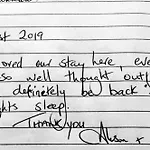 st 2019
oved our stay here, eve
so well thought out
definitely be back"
ghts sleep.
Thank you
Alison x